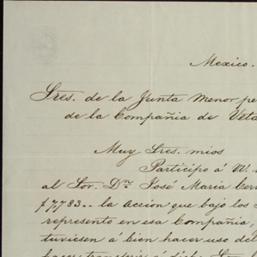 Mexico.
Sres. de la Junta Menor pe
de la Compañia de Veta
Muy Sres. mios
Participo á VV.
al Sor. Dn. José Maria Cer
f 7,783.. la accion que bajo los
represento en esa Compañia,
tuviesen á bien hacer uso del